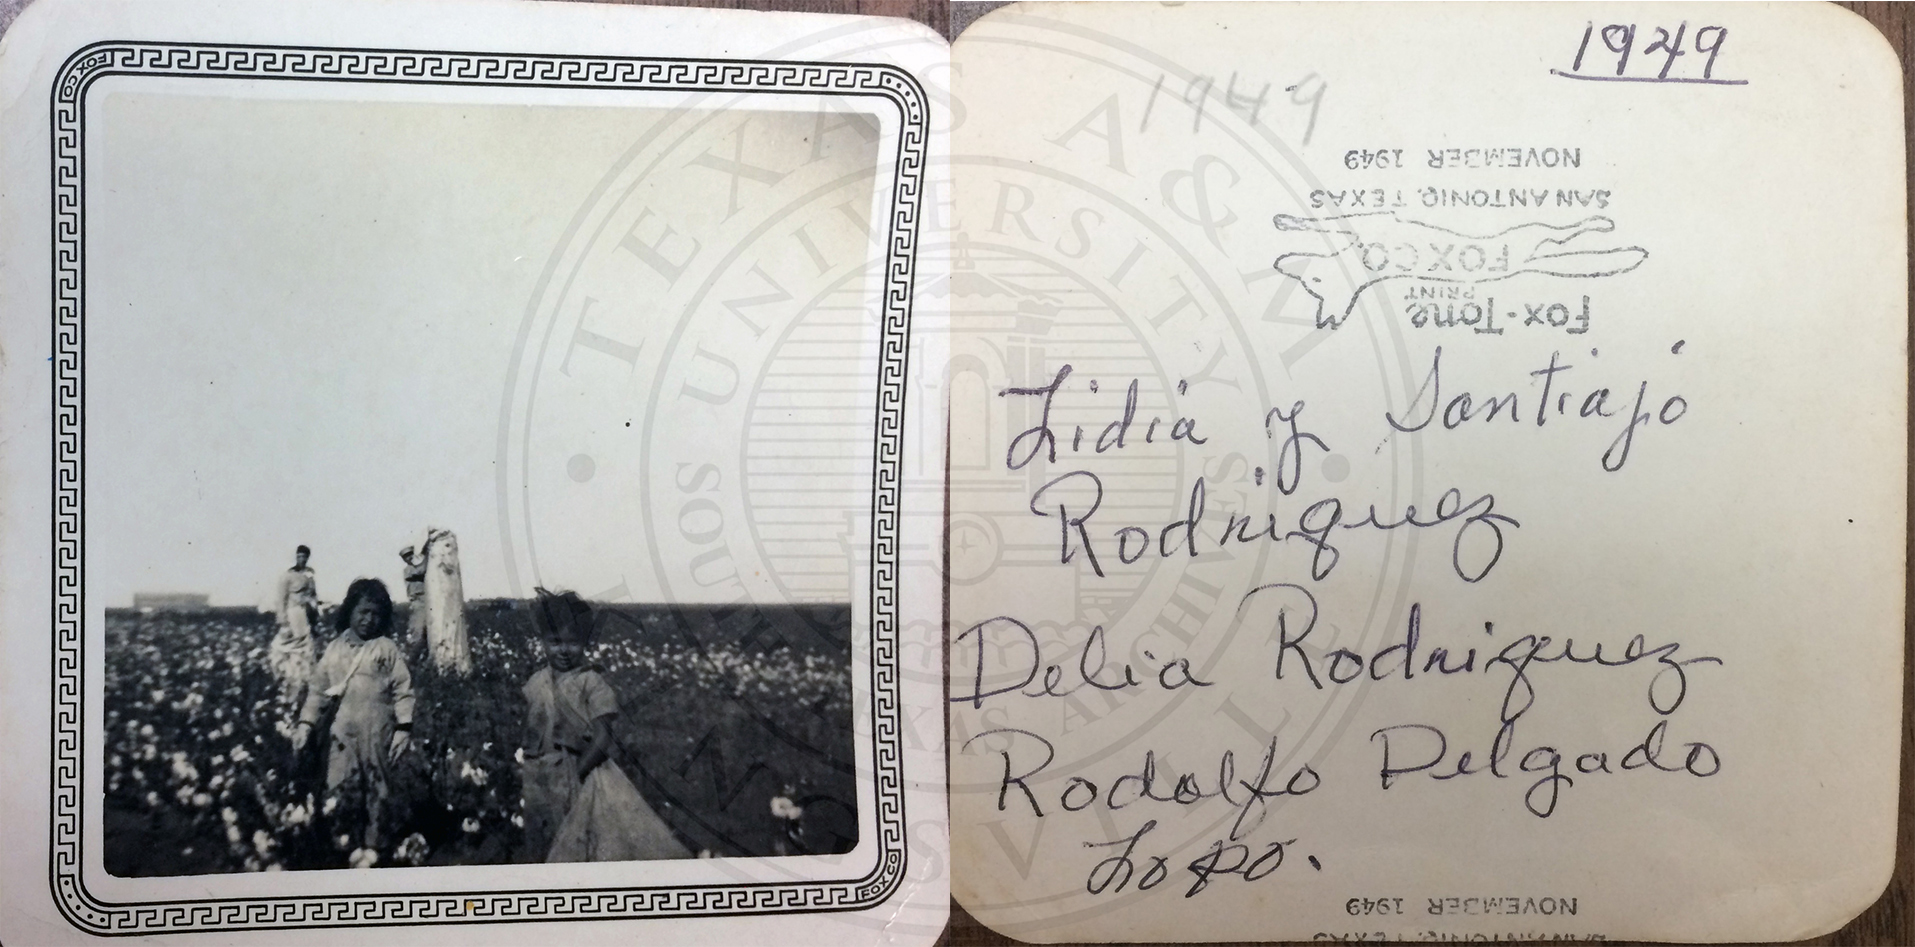 FOX CO
FOX CO
TEXAS A&M
UNIVERSITY
KINGSVILLE
SOUTH TEXAS ARCHIVES
1949
1949
Fox-Tone
PRINT
FOX CO.
SAN ANTONIO, TEXAS
NOVEMBER 1949
Lidia y Santiajo
Rodriguez
Delia Rodriguez
Rodolfo Delgado
Lopo.
SAN ANTONIO, TEXAS
NOVEMBER 1949